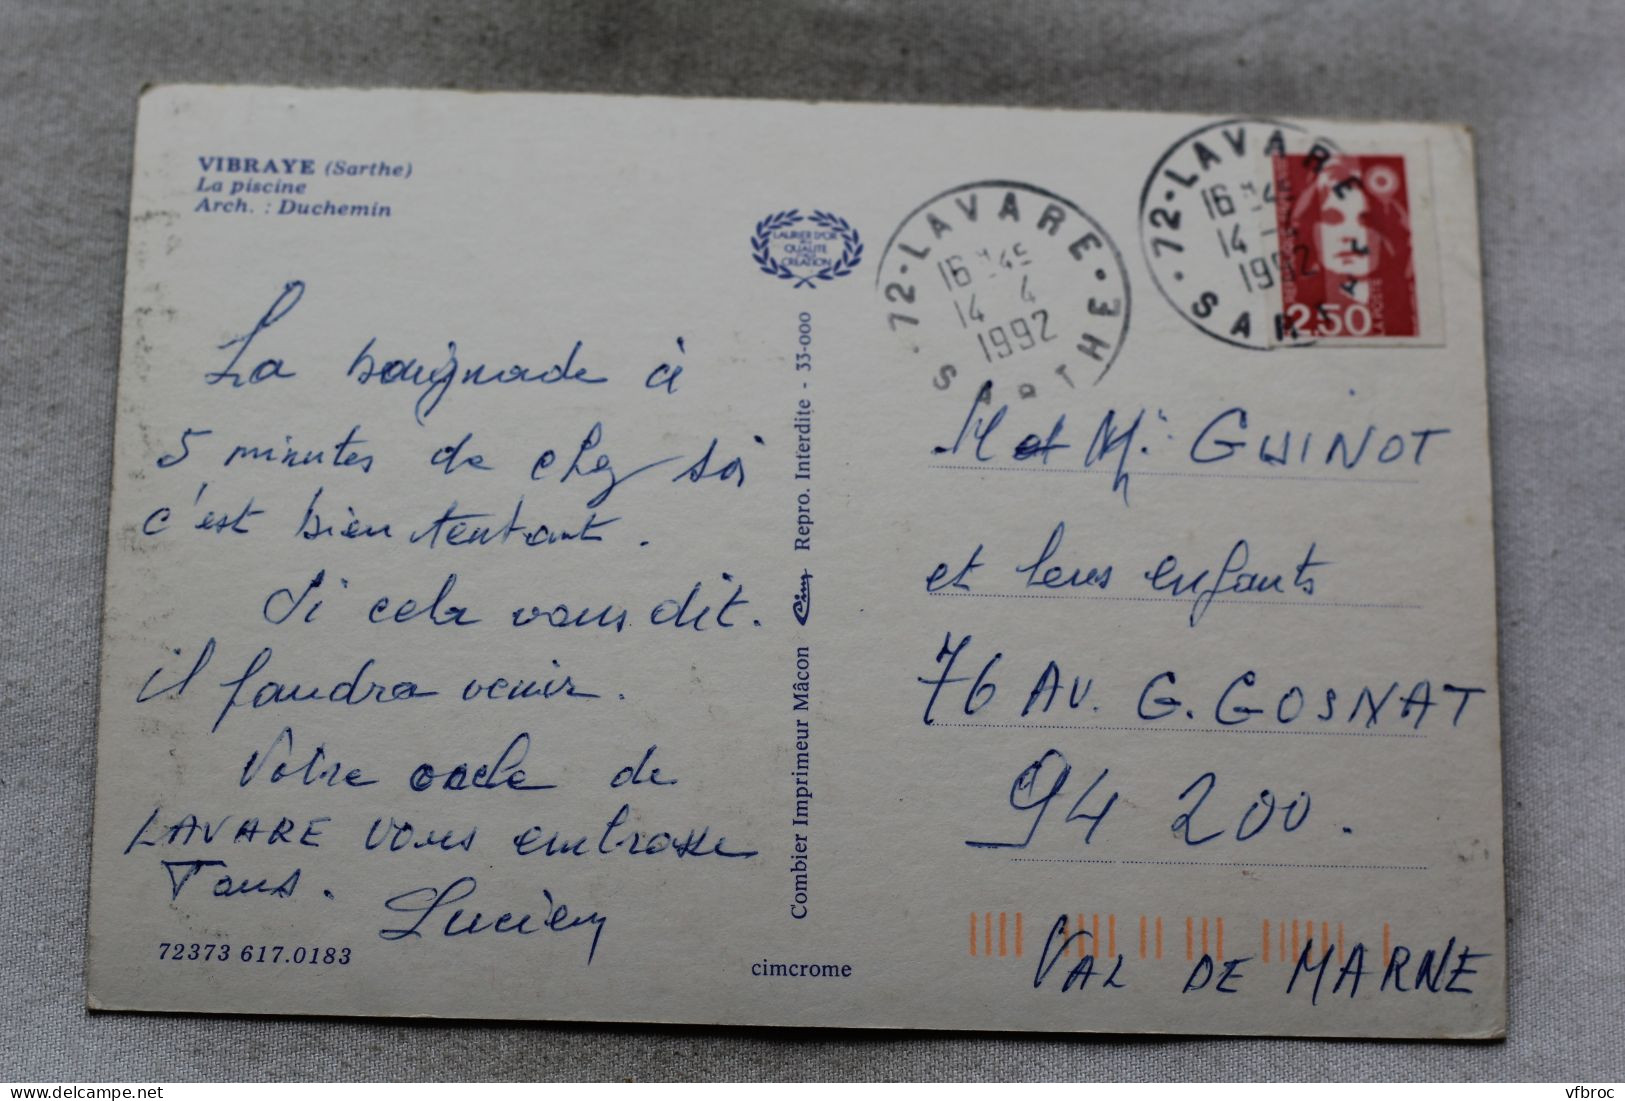 VIBRAYE (Sarthe)
La piscine
Arch. : Duchemin
La baignade à
5 minutes de chez soi
c'est bien tentant.
Si cela vous dit.
il faudra venir.
Votre oncle de
LAVARE vous embrasse
Tous.
Lucien
72373 617.0183
LAURIER D'OR
QUALITE
CREATION
Combier Imprimeur Mâcon Cim Repro. Interdite - 33-000
cimcrome
72 - LAVARE
16 H 45
14 4
1992
SARTHE
72 - LAVARE
16 H 45
14
1992
SARTHE
2,50
LA POSTE
M et Me GUINOT
et leurs enfants
76 AV. G. GOSNAT
94 200.
VAL DE MARNE
vfbroc